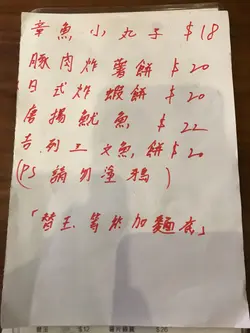 章魚小丸子 $18
豚肉炸薯餅 $20
日式炸蝦餅 $20
唐揚魷魚 $22
吉列工文魚餅 $20
(PS 請勿塗鴉)
「替玉 等於加麵底」
$32 $20